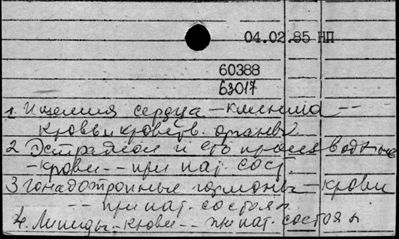 04.02.85 НП
60388
63017
1. Ишемия сердца – клиника --
кровь и кроветв. органы
2 Эстрадиол и его производные
-крови -- при пат. сост.
3 Гонадотропные гормоны – крови
-- при пат. состоян
4. Липиды - крови -- при пат. состоян